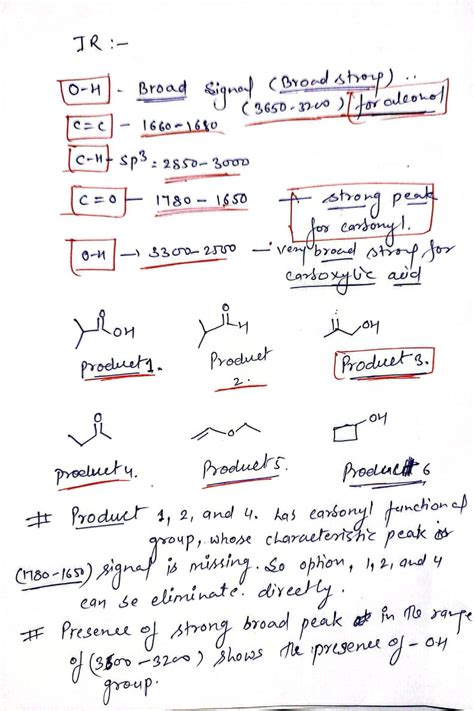 IR :-
O-H - Broad Signal (Broad strong) ..
(3650-3200) for alcohol
C=C - 1660-1680
C-H - sp3 = 2850-3000
C=O - 1780-1650 → strong peak
for carbonyl.
O-H → 3300-2500 - very broad strong for
carboxylic acid
O O
OH H OH
Product 1. Product 2. Product 3.
O O OH
product 4. Product 5. Product 6
# Product 1, 2, and 4. has carbonyl functional
group, whose characteristic peak is
(1780-1650) signal is missing. So option, 1, 2, and 4
can be eliminate directly.
# Presence of strong broad peak in the range
of (3600-3200) shows the presence of -OH
group.